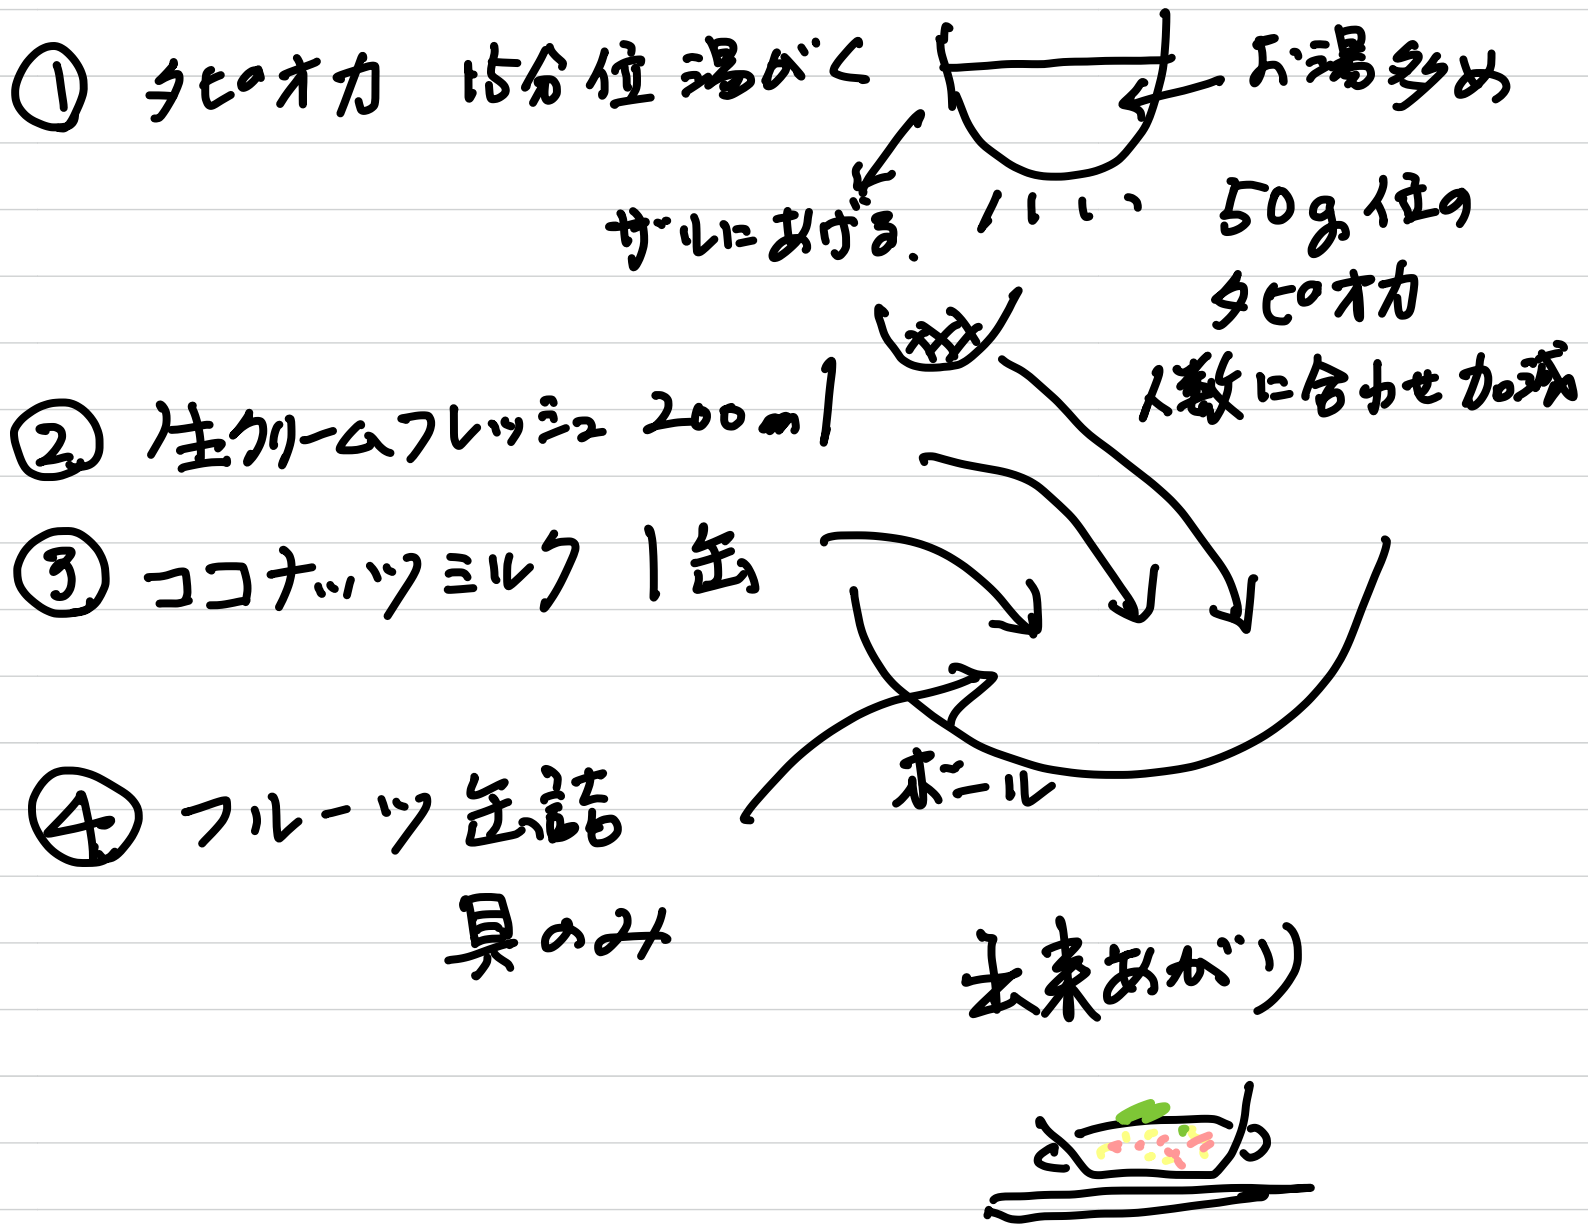 ① タピオカ 15分位 湯がく
お湯多め
ザルにあげる.
50g位の
タピオカ
人数に合わせ加減
② 生クリームフレッシュ 200ml
③ ココナッツミルク 1缶
ボール
④ フルーツ缶詰
具のみ
出来あがり